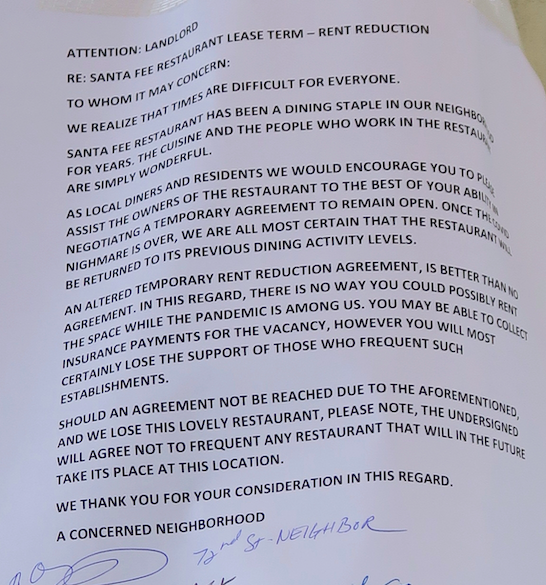 ATTENTION: LANDLORD
RE: SANTA FEE RESTAURANT LEASE TERM – RENT REDUCTION
TO WHOM IT MAY CONCERN:
WE REALIZE THAT TIMES ARE DIFFICULT FOR EVERYONE.
SANTA FEE RESTAURANT HAS BEEN A DINING STAPLE IN OUR
FOR YEARS. THE CUISINE AND THE PEOPLE WHO WORK IN THE
ARE SIMPLY WONDERFUL.
AS LOCAL DINERS AND RESIDENTS WE WOULD ENCOURAGE YOU TO PLEASE
ASSIST THE OWNERS OF THE RESTAURANT TO THE BEST OF YOUR ABILITY IN
NEGOTIATNG A TEMPORARY AGREEMENT TO REMAIN OPEN. ONCE THE COVID
NIGHMARE IS OVER, WE ARE ALL MOST CERTAIN THAT THE RESTAURANT WILL
BE RETURNED TO ITS PREVIOUS DINING ACTIVITY LEVELS.
AN ALTERED TEMPORARY RENT REDUCTION AGREEMENT, IS BETTER THAN NO
AGREEMENT. IN THIS REGARD, THERE IS NO WAY YOU COULD POSSIBLY RENT
THE SPACE WHILE THE PANDEMIC IS AMONG US. YOU MAY BE ABLE TO COLLECT
INSURANCE PAYMENTS FOR THE VACANCY, HOWEVER YOU WILL MOST
CERTAINLY LOSE THE SUPPORT OF THOSE WHO FREQUENT SUCH
ESTABLISHMENTS.
SHOULD AN AGREEMENT NOT BE REACHED DUE TO THE AFOREMENTIONED,
AND WE LOSE THIS LOVELY RESTAURANT, PLEASE NOTE, THE UNDERSIGNED
WILL AGREE NOT TO FREQUENT ANY RESTAURANT THAT WILL IN THE FUTURE
TAKE ITS PLACE AT THIS LOCATION.
WE THANK YOU FOR YOUR CONSIDERATION IN THIS REGARD.
A CONCERNED NEIGHBORHOOD
72nd St - NEIGHBOR